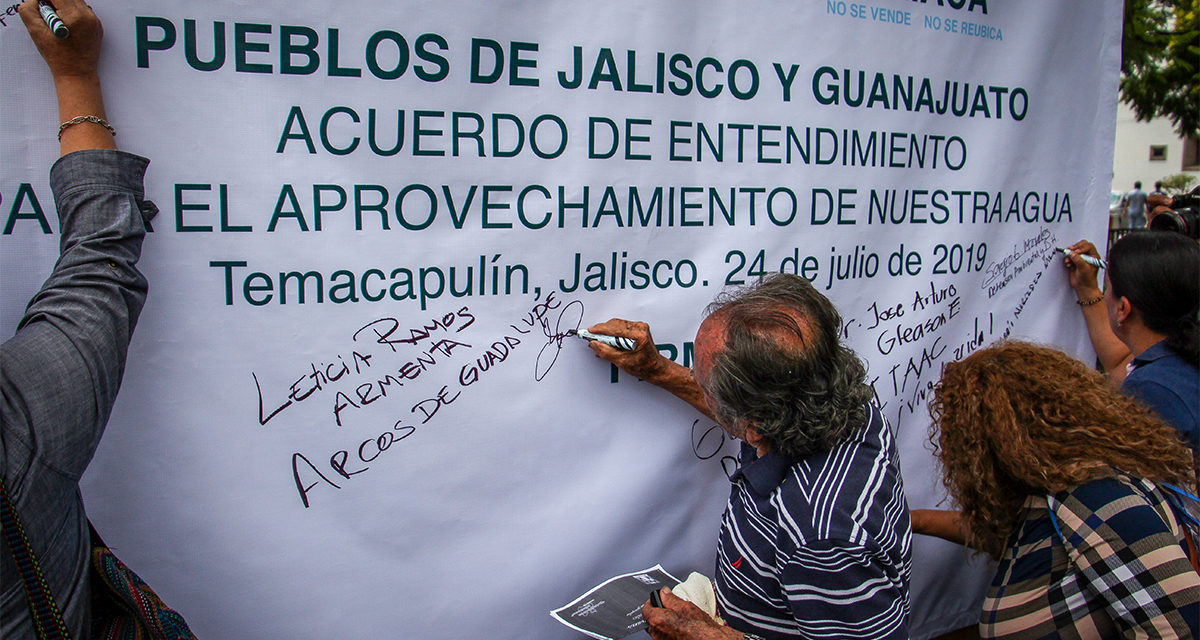 NO SE VENDE NO SE REUBICA
PUEBLOS DE JALISCO Y GUANAJUATO
ACUERDO DE ENTENDIMIENTO
EL APROVECHAMIENTO DE NUESTRA AGUA
Temacapulín, Jalisco. 24 de julio de 2019
LETICIA RAMOS
ARMENTA
ARCOS DE GUADALUPE
Jose Arturo
Gleason E
¡Viva
vida!